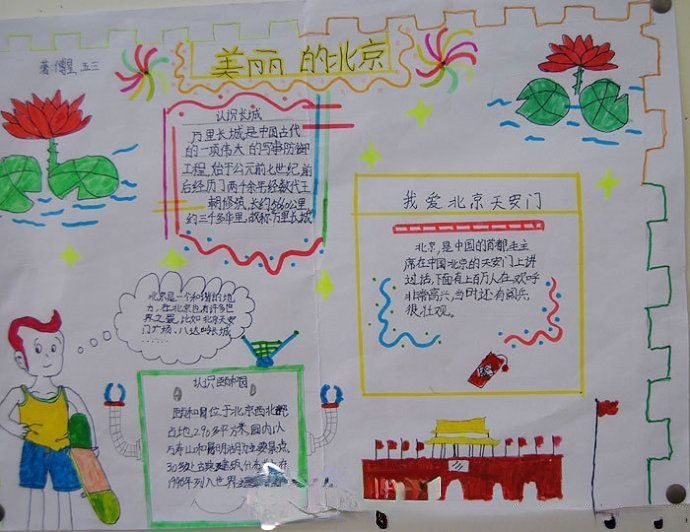 著:傅星 五三
美丽的北京
认识长城
万里长城,是中国古代
的一项伟大的军事防御
工程,始于公元前七世纪,前
后经历了两千余年经数代王
朝修筑,长约5660公里
约三千多年里,故称万里长城
我爱北京天安门
北京,是中国的首都毛主
席在中国北京的天安门上讲
过话,下面有上百万人在欢呼
非常高兴,当时还有阅兵,
很壮观。
北京是一个和谐的地
方,在北京也有许多世
界之最,比如北京天安
门广场、八达岭长城
……
认识颐和园
颐和园位于北京西北部
占地290多平方米,园内以
万寿山和昆明湖为主要景点,
30多处古典建筑分布
1998年列入世界